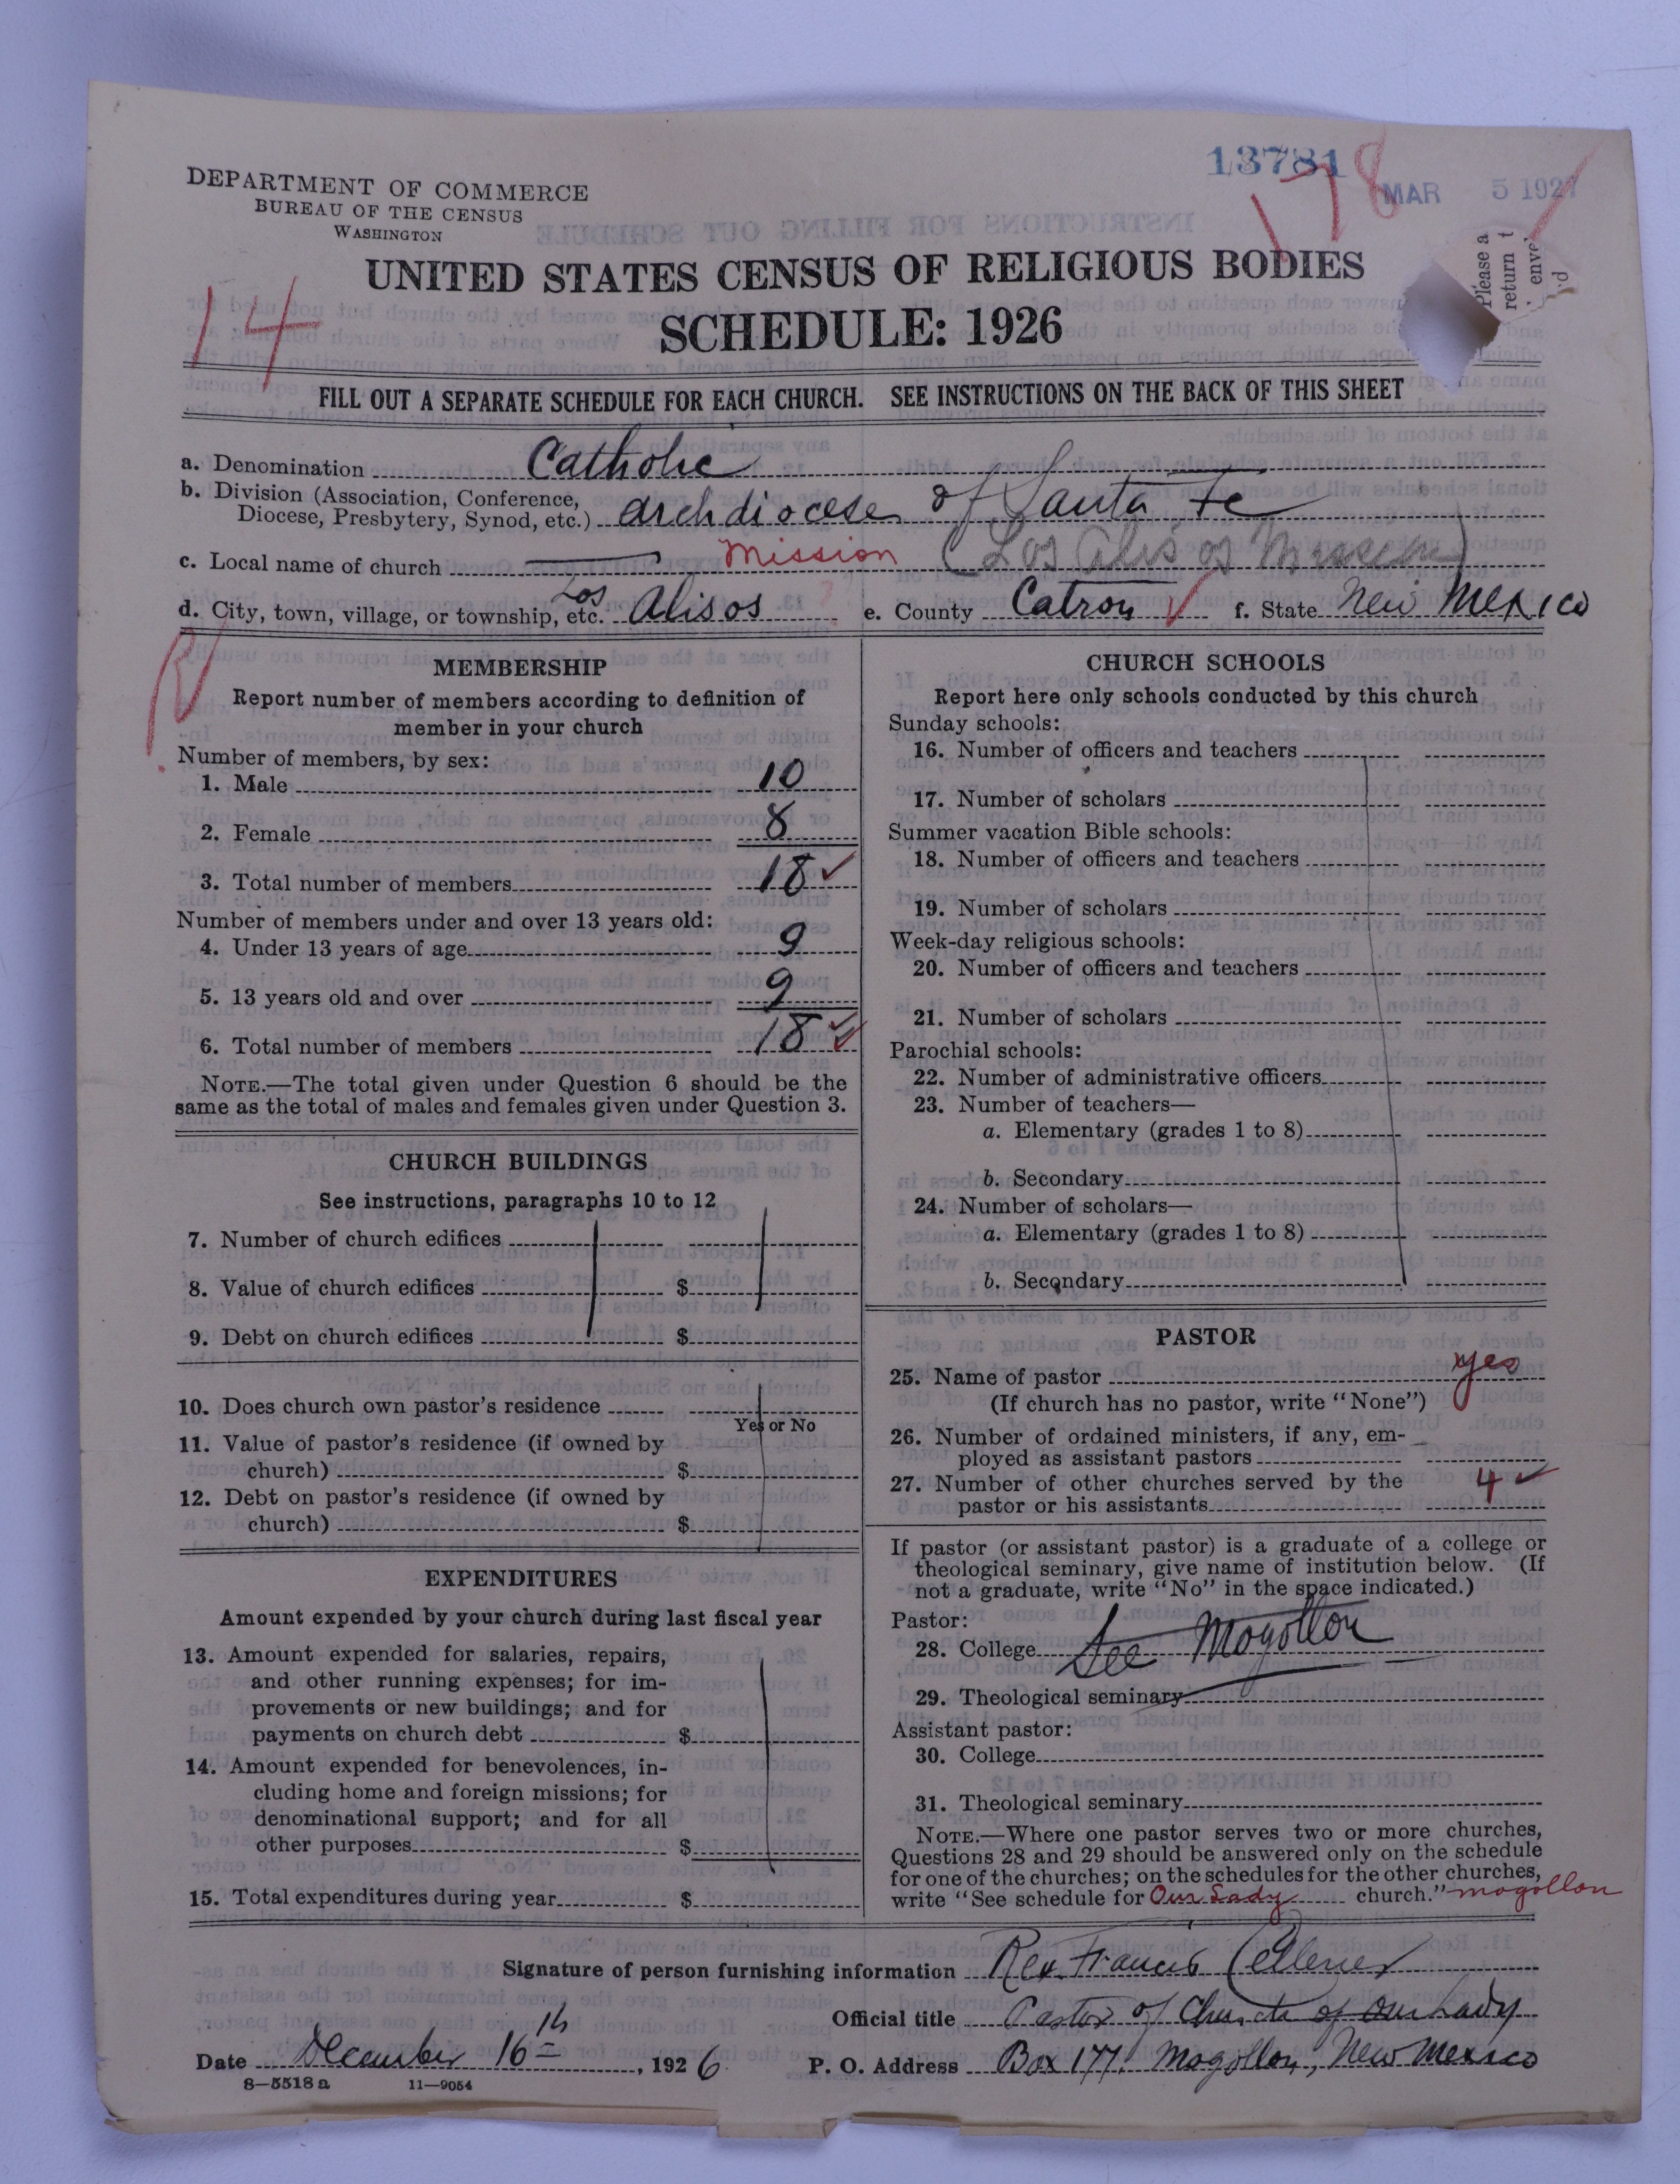 13781 178 MAR 5 1927
DEPARTMENT OF COMMERCE
BUREAU OF THE CENSUS
WASHINGTON
Please a
return t
enve
UNITED STATES CENSUS OF RELIGIOUS BODIES
14
SCHEDULE: 1926
FILL OUT A SEPARATE SCHEDULE FOR EACH CHURCH. SEE INSTRUCTIONS ON THE BACK OF THIS SHEET
a. Denomination Catholic
b. Division (Association, Conference,
Diocese, Presbytery, Synod, etc.) archdiocese of Santa Fe
c. Local name of church Mission (Los Alisos Mission)
d. City, town, village, or township, etc. Los Alisos e. County Catron f. State New Mexico
MEMBERSHIP
Report number of members according to definition of
member in your church
Number of members, by sex:
1. Male 10
2. Female 8
3. Total number of members 18
Number of members under and over 13 years old:
4. Under 13 years of age 9
5. 13 years old and over 9
6. Total number of members 18
NOTE.—The total given under Question 6 should be the
same as the total of males and females given under Question 3.
CHURCH BUILDINGS
See instructions, paragraphs 10 to 12
7. Number of church edifices
8. Value of church edifices $
9. Debt on church edifices $
10. Does church own pastor's residence
Yes or No
11. Value of pastor's residence (if owned by
church) $
12. Debt on pastor's residence (if owned by
church) $
EXPENDITURES
Amount expended by your church during last fiscal year
13. Amount expended for salaries, repairs,
and other running expenses; for im-
provements or new buildings; and for
payments on church debt $
14. Amount expended for benevolences, in-
cluding home and foreign missions; for
denominational support; and for all
other purposes $
15. Total expenditures during year $
CHURCH SCHOOLS
Report here only schools conducted by this church
Sunday schools:
16. Number of officers and teachers
17. Number of scholars
Summer vacation Bible schools:
18. Number of officers and teachers
19. Number of scholars
Week-day religious schools:
20. Number of officers and teachers
21. Number of scholars
Parochial schools:
22. Number of administrative officers
23. Number of teachers—
a. Elementary (grades 1 to 8)
b. Secondary
24. Number of scholars—
a. Elementary (grades 1 to 8)
b. Secondary
PASTOR
25. Name of pastor yes
(If church has no pastor, write "None")
26. Number of ordained ministers, if any, em-
ployed as assistant pastors
27. Number of other churches served by the
pastor or his assistants 4
If pastor (or assistant pastor) is a graduate of a college or
theological seminary, give name of institution below. (If
not a graduate, write "No" in the space indicated.)
Pastor:
28. College See Mogollon
29. Theological seminary
Assistant pastor:
30. College
31. Theological seminary
NOTE.—Where one pastor serves two or more churches,
Questions 28 and 29 should be answered only on the schedule
for one of the churches; on the schedules for the other churches,
write "See schedule for Our Lady church." mogollon
Signature of person furnishing information Rev. Francis
Official title Pastor of Church of Our Lady
Date December 16th, 1926 P. O. Address Box 177. Mogollon, New Mexico
8—5518 a 11—9054